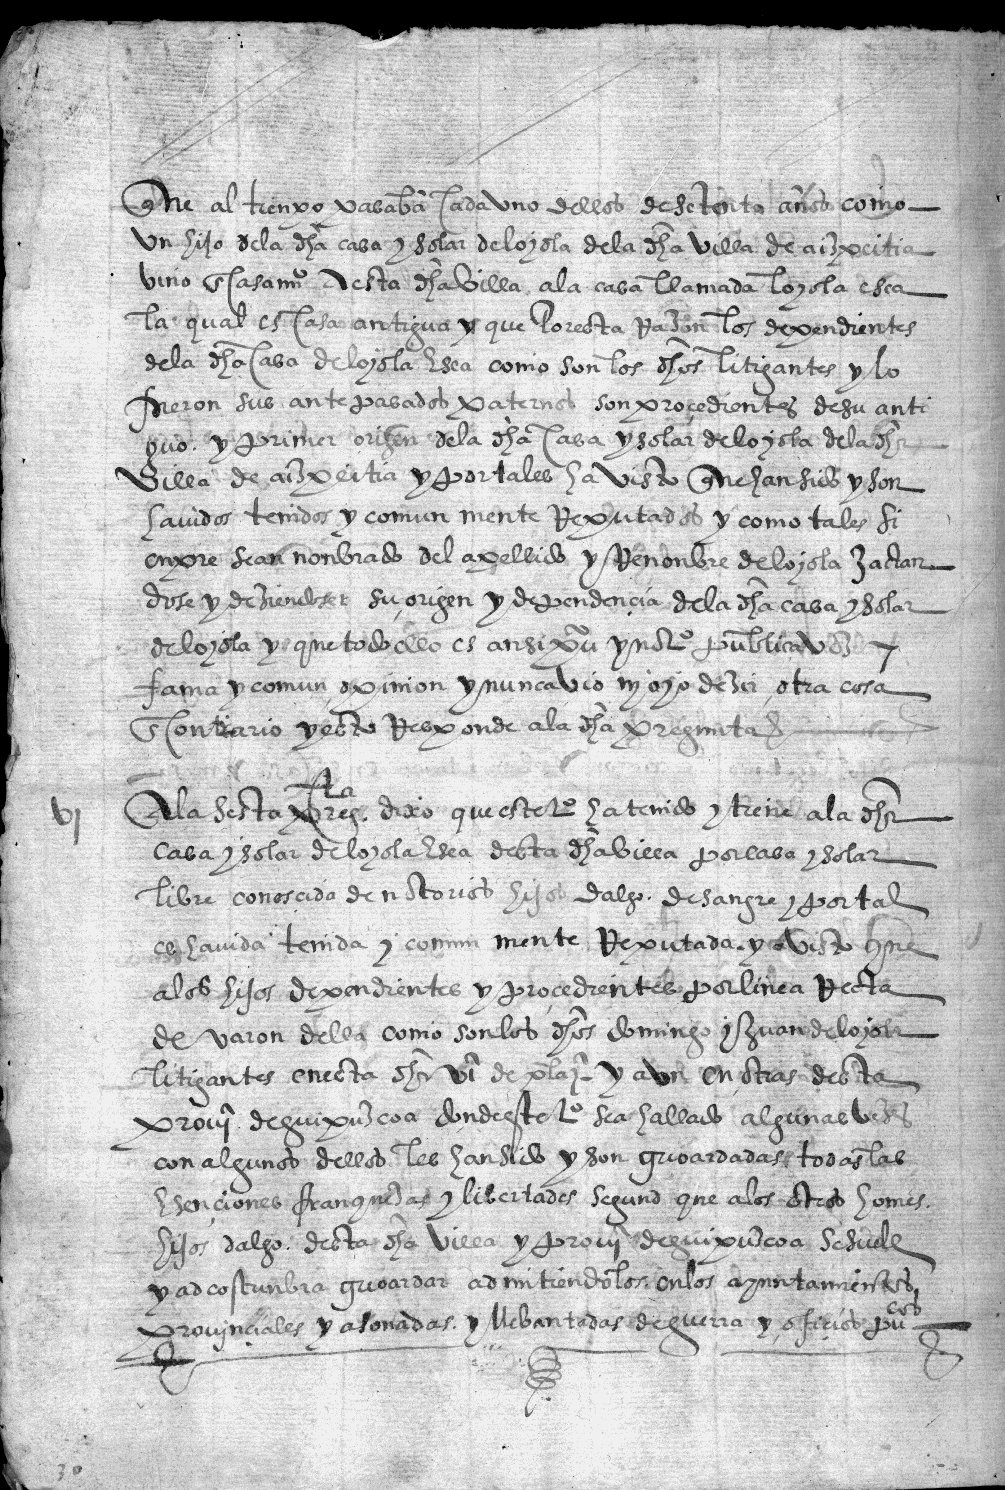 que al tienpo pasaban cada uno dellos de setenta años como
un hijo dela dha casa y solar de loyola dela dha villa de aizpeitia
vino casamio a esta dha villa ala casa llamada loyola
la qual es casa antigua y que por esta Razon los dependientes
dela dha casa de loyola como son los dhos litigantes y lo
fueron sus antepasados paternos son procedientes de su anti
guo y primer origen dela dha casa y solar de loyola dela dha
villa de aizpeitia y por tales ha visto que han sido y son
havidos tenidos y comunmente Reputados y como tales si
enpre sean nonbrado del apellido y Renonbre de loyola Jactan
dose y deziendo ser su origen y dependençia dela dha casa y solar
de loyola y que todo ello es ansi pu y not publica voz y
fama y comun opinion y nunca vio ny oyo dezir otra cosa
en contrario y esto Responde ala dha pregunta
vj
Ala sesta preg.ta dixo que este to ha tenido y tiene ala dha
casa y solar de loyola desta dha villa por casa y solar
libre conoscida de notorios hijos dalgo de sangre y por tal
es havida tenida y comunmente Reputada y a visto que
alos hijos dependientes y procedientes por linea Recta
de varon della como son los dhos domingo y Juan de loyola
litigantes enesta dha vi de plaz.a y aun en otras desta
provi de guipuzcoa donde este to sea hallado algunas vezes
con algunos dellos les han sido y son guoardadas todas las
esençiones franquezas y libertades segund que alos otros homes
hijos dalgo desta dha villa y provi de guipuzcoa se suele
y adcostunbra guoardar admitiendolos enlos ayuntamientos
provinçiales y asonadas y llebantadas de guerra y ofiçios pu.cos